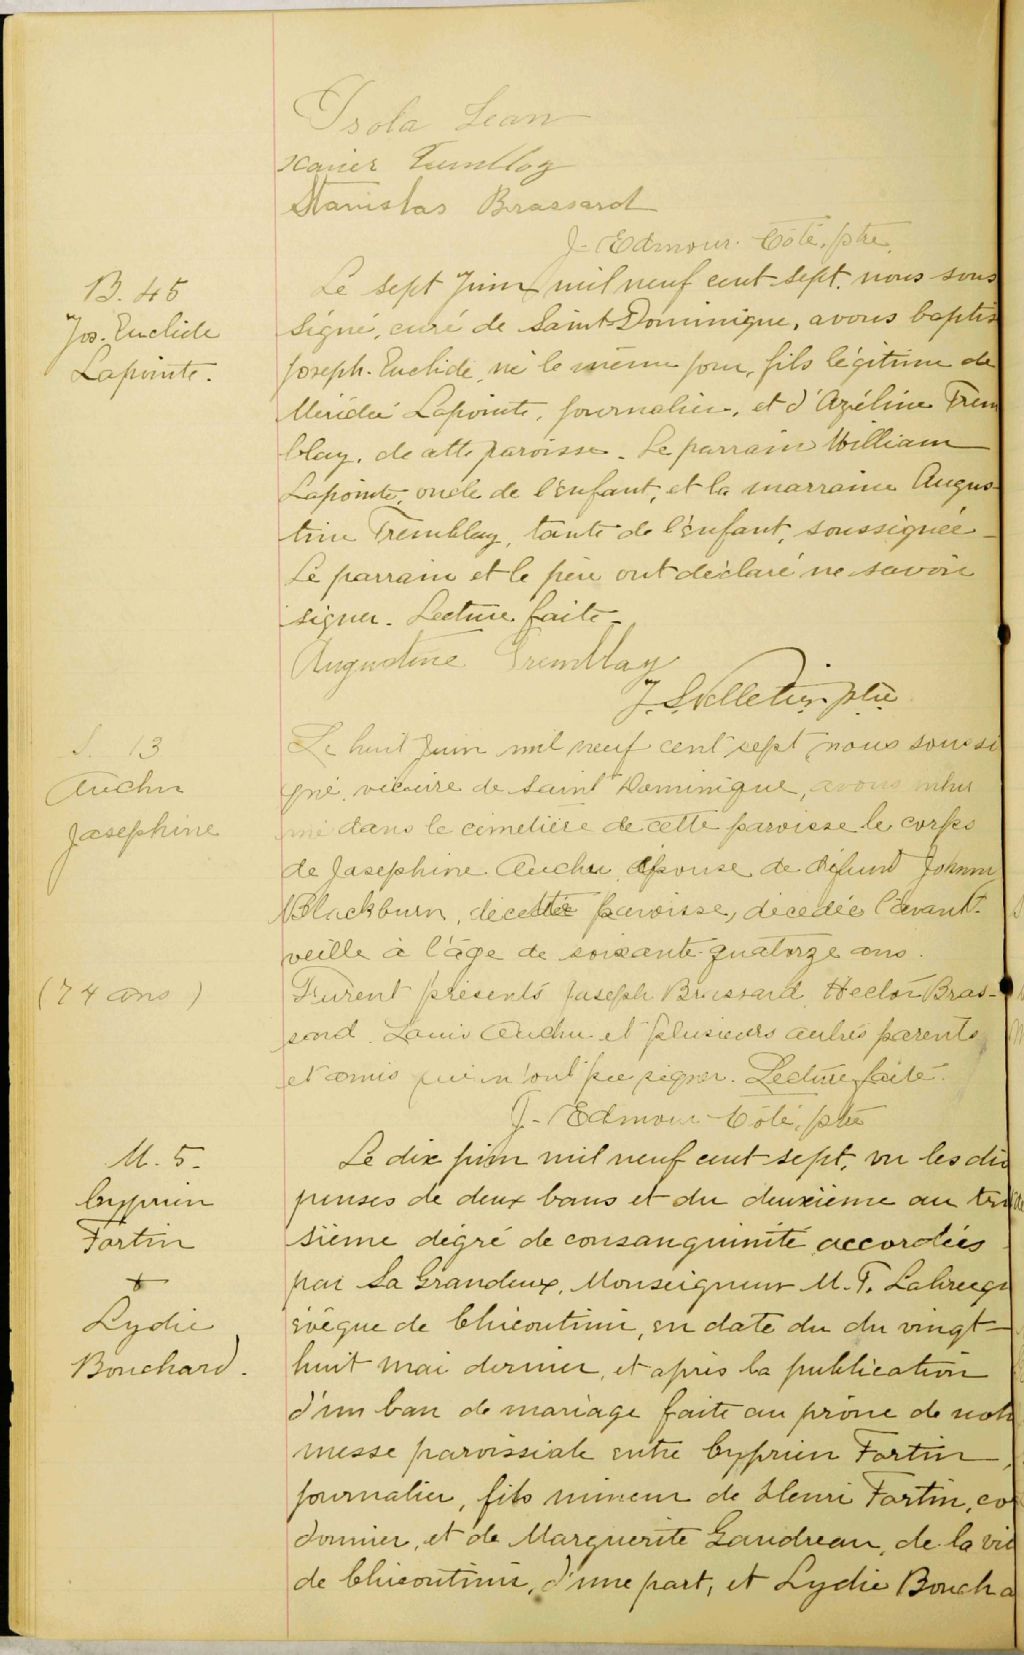 Isola Jean
Xavier Tremblay
Stanislas Brassard
J. Edmour Côté, ptre.
B. 45
Jos. Euclide
Lapointe.
Le sept Juin mil neuf cent sept, nous sous
signé, curé de Saint Dominique, avons baptis
Joseph-Euclide, né le même jour, fils légitime de
Méridé Lapointe, journalier, et d'Azéline Trem
blay, de cette paroisse. Le parrain William
Lapointe, oncle de l'enfant, et la marraine Augus-
tine Tremblay, tante de l'enfant, soussignée
Le parrain et le père ont déclaré ne savoir
signer. Lecture faite.
Augustine Tremblay
J. Pelletier ptre
S. 13
Auchu
Josephine
(74 ans)
Le huit Juin mil neuf cent sept, nous soussi
gné, vicaire de Saint Dominique, avons inhu
mé dans le cimetière de cette paroisse le corps
de Josephine Auchu, épouse de défunt Johnny
Blackburn, de cette paroisse, décédée l'avant-
veille à l'âge de soixante quatorze ans.
Furent présents Joseph Brassard, Hector Bras-
sard, Louis Auchu et plusieurs autres parents
et amis qui n'ont pu signer. Lecture faite.
J. Edmour Côté, ptre
M. 5.
Cyprien
Fortin
&
Lydie
Bouchard.
Le dix juin mil neuf cent sept, vu les dis
penses de deux bans et du deuxième au troi
sième dégré de consanguinité accordées
par Sa Grandeur, Monseigneur M. T. Labrecqu
évêque de Chicoutimi, en date du du vingt-
huit mai dernier, et après la publication
d'un ban de mariage faite au prône de notr
messe paroissiale entre Cyprien Fortin,
journalier, fils mineur de Henri Fortin, cor
donnier, et de Marguerite Gaudreau, de la vil
de Chicoutimi, d'une part, et Lydie Boucha